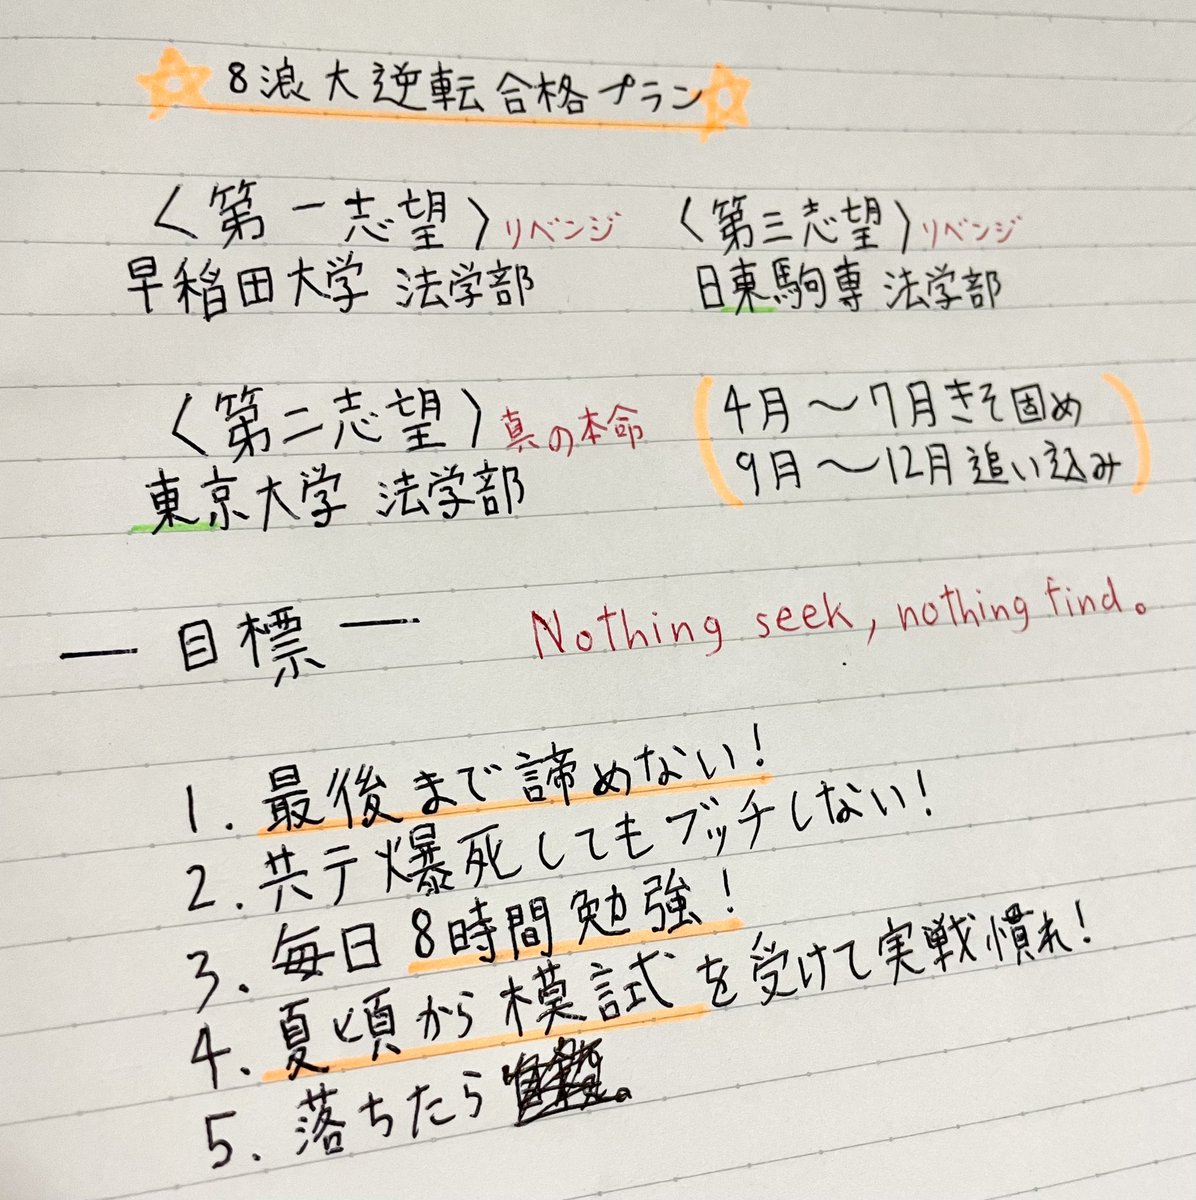 8浪大逆転合格プラン
〈第一志望〉リベンジ
早稲田大学 法学部
〈第三志望〉リベンジ
日東駒専 法学部
〈第二志望〉真の本命
東京大学 法学部
(4月〜7月きそ固め
9月〜12月追い込み)
— 目標 —
Nothing seek, nothing find。
1. 最後まで諦めない!
2. 共テ爆死してもブッチしない!
3. 毎日8時間勉強!
4. 夏頃から模試を受けて実戦慣れ!
5. 落ちたら